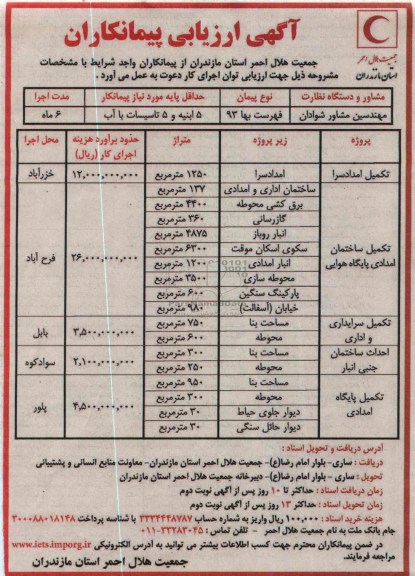 آگهی ارزیابی پیمانکاران
جمعیت هلال احمر
استان مازندران
جمعیت هلال احمر استان مازندران از پیمانکاران واجد شرایط با مشخصات
مشروحه ذیل جهت ارزیابی توان اجرای کار دعوت به عمل می آورد.
مشاور و دستگاه نظارت نوع پیمان حداقل پایه مورد نیاز پیمانکار مدت اجرا
مهندسین مشاور شوادان فهرست بها ۹۳ ۵ ابنیه و ۵ تاسیسات یا آب ۶ ماه
پروژه زیر پروژه متراژ حدود برآورد هزینه اجرای کار (ریال) محل اجرا
تکمیل امدادسرا امدادسرا ۱۲۵۰ مترمربع ۱۲,۰۰۰,۰۰۰,۰۰۰ خزرآباد
تکمیل ساختمان امدادی پایگاه هوایی ساختمان اداری و امدادی ۱۳۷ مترمربع ۲۶,۰۰۰,۰۰۰,۰۰۰ فرح آباد
برق کشی محوطه ۴۴۰۰ مترمربع
گازرسانی ۳۶۰ مترمربع
انبار روباز ۴۸۷۵ مترمربع
سکوی اسکان موقت ۶۳۰۰ مترمربع
انبار امدادی ۱۲۰۰ مترمربع
محوطه سازی ۳۵۰۰ مترمربع
پارکینگ سنگین ۶۰۰ مترمربع
خیابان (آسفالت) ۹۸۰ مترمربع
تکمیل سرایداری و اداری مساحت بنا ۷۵۰ مترمربع ۳,۵۰۰,۰۰۰,۰۰۰ بابل
محوطه ۶۰۰ مترمربع
احداث ساختمان جنبی انبار مساحت بنا ۳۰۰ مترمربع ۲,۱۰۰,۰۰۰,۰۰۰ سوادکوه
محوطه ۲۵۰ مترمربع
تکمیل پایگاه امدادی مساحت بنا ۹۵۰ مترمربع ۴,۵۰۰,۰۰۰,۰۰۰ پلور
محوطه ۳۰۰ مترمربع
دیوار جلوی حیاط ۳۰ مترمربع
دیوار حائل سنگی ۳۰ مترمربع
آدرس دریافت و تحویل اسناد:
دریافت: ساری- بلوار امام رضا(ع)- جمعیت هلال احمر استان مازندران- معاونت منابع انسانی و پشتیبانی
تحویل: ساری- بلوار امام رضا(ع)- دبیرخانه جمعیت هلال احمر استان مازندران
زمان دریافت اسناد: حداکثر تا ۱۰ روز پس از آگهی نوبت دوم
زمان تحویل اسناد: حداکثر ۱۳ روز پس از آگهی نوبت دوم
هزینه خرید اسناد: ۱۰۰,۰۰۰ ریال واریز به شماره حساب ۳۳۳۴۴۴۸۷۸۷ با شناسه پرداخت ۳۰۰۰۸۸۰۱۸۱۴۸
جام بانک ملت به نام جمعیت هلال احمر - تلفن تماس: ۰۱۱-۳۳۲۸۳۰۴۵
در ضمن پیمانکاران محترم جهت کسب اطلاعات بیشتر می توانید به آدرس الکترونیکی www.iets.imporg.ir
مراجعه فرمایند.
جمعیت هلال احمر استان مازندران